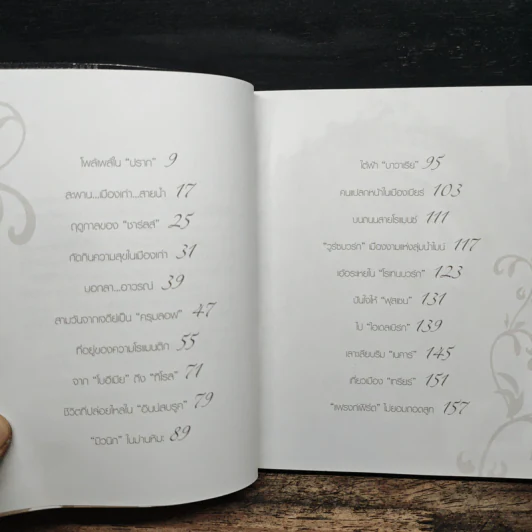 โพล้เพล้ใน "ปราก" 9
สะพาน...เมืองเก่า...สายน้ำ 17
ฤดูกาลของ "ชาร์ลส์" 25
กัดกินความสุขในเมืองเก่า 31
บอกลา...อาวรณ์ 39
สามวันจากเจดีย์เป็น "ครุมลอฟ" 47
ที่อยู่ของความโรแมนติก 55
จาก "โบฮีเมีย" ถึง "ทีโรล" 71
ชีวิตที่ปล่อยไหลใน "อินน์สบรุค" 79
"มิวนิก" ในม่านหิมะ 89
ใต้ฟ้า "บาวาเรีย" 95
คนแปลกหน้าในเมืองเบียร์ 103
บนถนนสายโรแมนซ์ 111
"วูร์ซบวร์ก" เมืองงามแห่งลุ่มน้ำไมน์ 117
เฮ้อระเหยใน "โรเทนบวร์ก" 123
ปันใจให้ "ฟุสเซน" 131
ไป "ไฮเดลเบิร์ก" 139
เลาะเลียบริม "เนคาร์" 145
เที่ยวเมือง "เทรียร์" 151
"แฟรงก์เฟิร์ต" ไม่ยอมถอดสูท 157